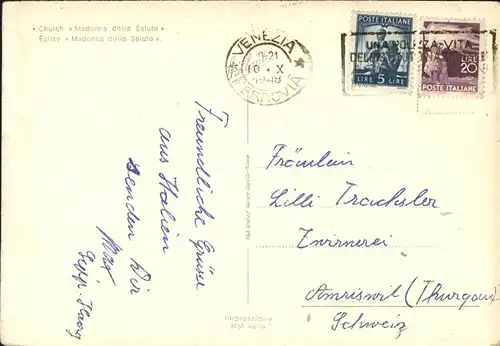 Church « Madonna della Salute »
Église « Madonna della Salute ».
VENEZIA
19-21
10·X
1948
FERROVIA
POSTE ITALIANE
LIRE 5 LIRE
LIRE
20
POSTE ITALIANE
Freundliche Grüsse
aus Italien
senden Dir
Max
Sepp. Haag
Fräulein
Lilli Trachsler
Zwirnerei
Amriswil (Thurgau)
Schweiz
Impressione
dal vero